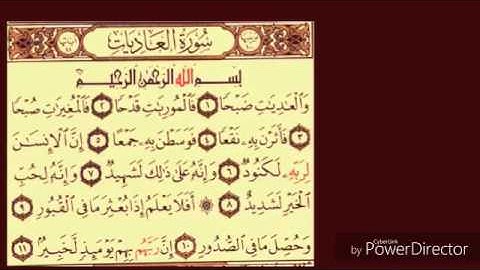 سُورَةُ الْعَادِيَاتِ
بِسْمِ اللَّهِ الرَّحْمَٰنِ الرَّحِيمِ
وَالْعَٰدِيَٰتِ ضَبْحًا ١ فَالْمُورِيَٰتِ قَدْحًا ٢ فَالْمُغِيرَٰتِ صُبْحًا
٣ فَأَثَرْنَ بِهِ نَقْعًا ٤ فَوَسَطْنَ بِهِ جَمْعًا ٥ إِنَّ الْإِنسَٰنَ
لِرَبِّهِ لَكَنُودٌ ٦ وَإِنَّهُ عَلَىٰ ذَٰلِكَ لَشَهِيدٌ ٧ وَإِنَّهُ لِحُبِّ
الْخَيْرِ لَشَدِيدٌ ٨ ۞ أَفَلَا يَعْلَمُ إِذَا بُعْثِرَ مَا فِي الْقُبُورِ ٩
وَحُصِّلَ مَا فِي الصُّدُورِ ١٠ إِنَّ رَبَّهُم بِهِمْ يَوْمَئِذٍ لَّخَبِيرٌ ١١
CyberLink
by PowerDirector